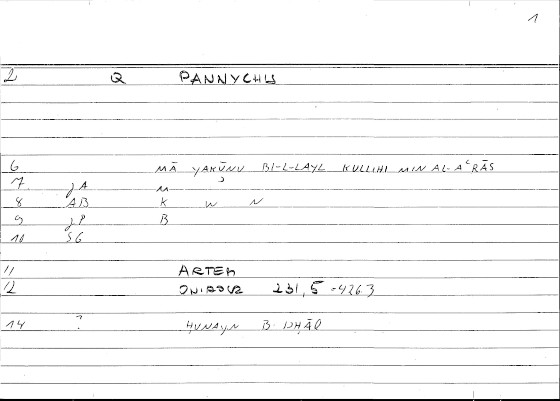 1
2 Q PANNYCHIS
6 MĀ YAKŪNU BI-L-LAYL KULLIHI MIN AL-AʿRĀS
7 JA M
8 AB K W N
9 JP B
10 SG
11 ARTEM
12 ONIROCR 231,5 -4263
14 ? ḤUNAYN B. ISḤĀQ